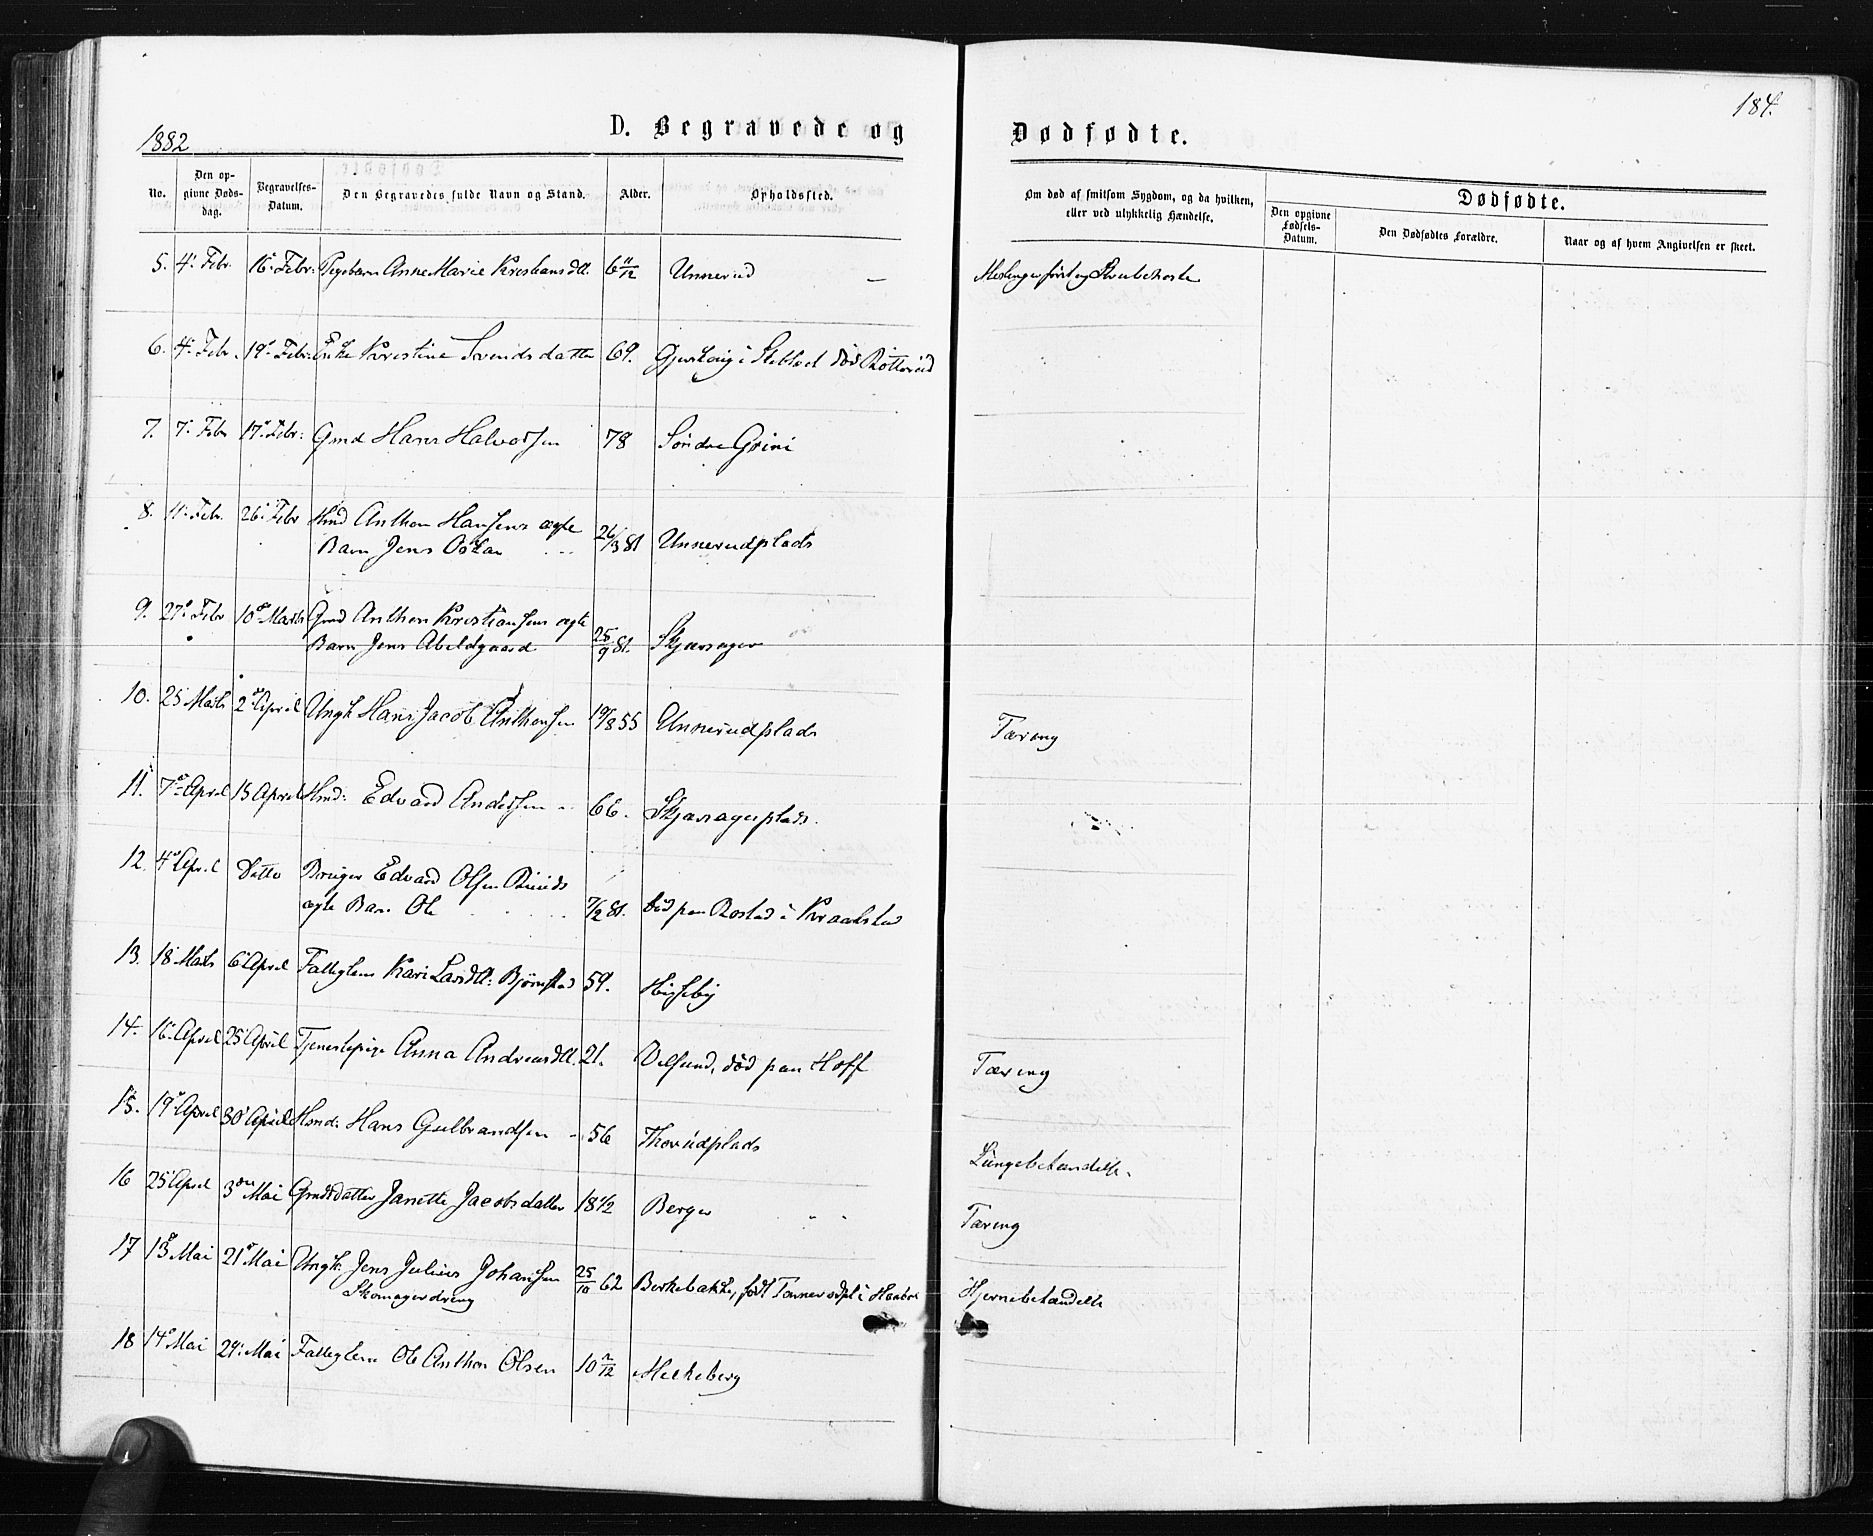 184.
1882
D. Begravede og Dødfødte.
No.
Den opgivne Dødsdag.
Begravelses-Datum.
Den Begravedes fulde Navn og Stand.
Alder.
Opholdssted.
Om død af smitsom Sygdom, og da hvilken, eller ved ulykkelig Hændelse.
Dødfødte.
Den opgivne Fødsels-Datum.
Den Dødfødtes Forældre.
Naar og af hvem Angivelsen er skeet.
5. 4. Febr. 16. Febr: Pigebarn Anne Marie Kristiansdtt. 6 11/12 Unnerud Meslinger først og Strubehoste
6. 4. Febr. 19. Febr. Enke Kristine Svendsdatter 69. i død Rotterud
7. 7. Febr 17. Febr: Gmd Hans Halvorsen 78 Søndre Grini
8. 11. Febr. 26. Febr Hmd Anthon Hansens ægte
Barn Jens Oskar 26/3 81 Unnerudplads
9. 27. Febr 10 Marts Gmd Anthon Kristiansens ægte
Barn Jens Abildgaard 25/9 81. Skjærager
10. 25 Marts 2 April Ungk Hans Jacob Anthonsen 19/8 55 Unnerudplads Tæring
11. 7 April 15 April Hmd: Edvard Andersen 66. Skjæragerplads.
12. 4 April Ditto Bruger Edvard Olsen Riiids
ægte Barn Ole 7/2 81. død paa Rostad i Kraakstad
13. 18 Marts 6 April Fattiglem Kari Larsdtt: Bjørnstad 59. Huseby
14. 16. April 25 April Tjenestepige Anna Andreasdtt. 21. død paa Hoff Tæring
15. 19 April 30 April Hmd: Hans Gulbrandsen 56 Thorudplads Lungebetændelse.
16 25 April 3 Mai Gmdsdatter Janette Jacobsdatter 18 1/2 Berger Tæring
17 13 Mai 21 Mai Ungk: Jens Julius Johansen 25/10 62 Birkebakke, født i Haabøl Hjernebetændelse
Skomagerdreng
18 14 Mai 29. Mai Fattiglem Ole Anthon Olsen 10 Melkeberg